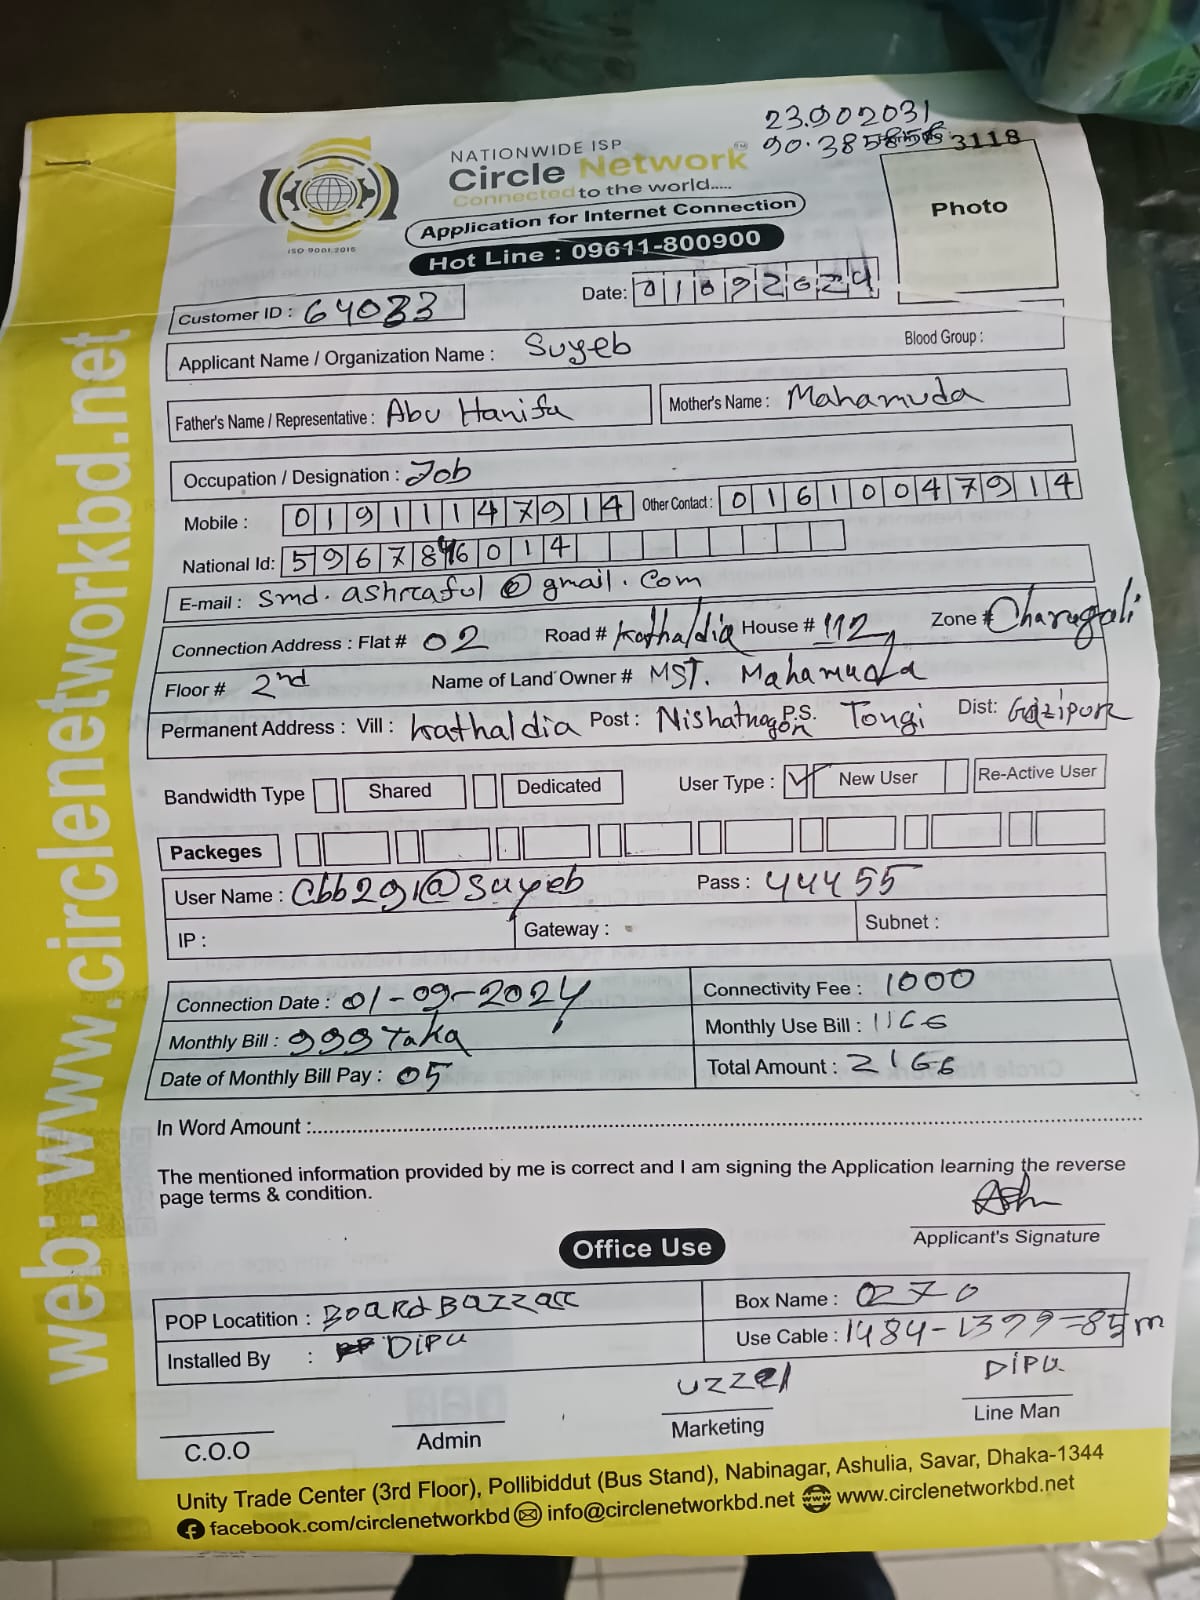 23.902031
90.385858 3118
NATIONWIDE ISP
Circle Network
Connected to the world.....
Application for Internet Connection
Hot Line : 09611-800900
ISO 9001:2015
Photo
Customer ID : 64033
Date: 01092024
Applicant Name / Organization Name : Suyeb Blood Group :
Father's Name / Representative : Abu Hanifa Mother's Name : Mahamuda
Occupation / Designation : Job
Mobile : 01911147914 Other Contact : 01610047914
National Id: 5967846014
E-mail : smd.ashraful@gmail.com
Connection Address : Flat # 02 Road # Kathaldia House # 112 Zone # Charugali
Floor # 2nd Name of Land Owner # MST. Mahamuda
Permanent Address : Vill : Kathaldia Post : Nishatnagor P.S. Tongi Dist: Gazipur
Bandwidth Type Shared Dedicated User Type : New User Re-Active User
Packeges
User Name : Cbb291@Suyeb Pass : 44455
IP : Gateway : Subnet :
Connection Date : 01-09-2024 Connectivity Fee : 1000
Monthly Bill : 999 Taka Monthly Use Bill : 1166
Date of Monthly Bill Pay : 05 Total Amount : 2166
In Word Amount :
The mentioned information provided by me is correct and I am signing the Application learning the reverse
page terms & condition.
Applicant's Signature
Office Use
POP Locatition : Board Bazzar Box Name : 270
Installed By : DIPU Use Cable : 1484-1399=85m
UZZEL DIPU
C.O.O Admin Marketing Line Man
Unity Trade Center (3rd Floor), Pollibiddut (Bus Stand), Nabinagar, Ashulia, Savar, Dhaka-1344
facebook.com/circlenetworkbd info@circlenetworkbd.net www.circlenetworkbd.net
web: www.circlenetworkbd.net